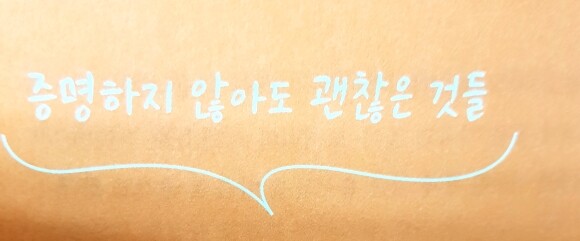 증명하지 않아도 괜찮은 것들